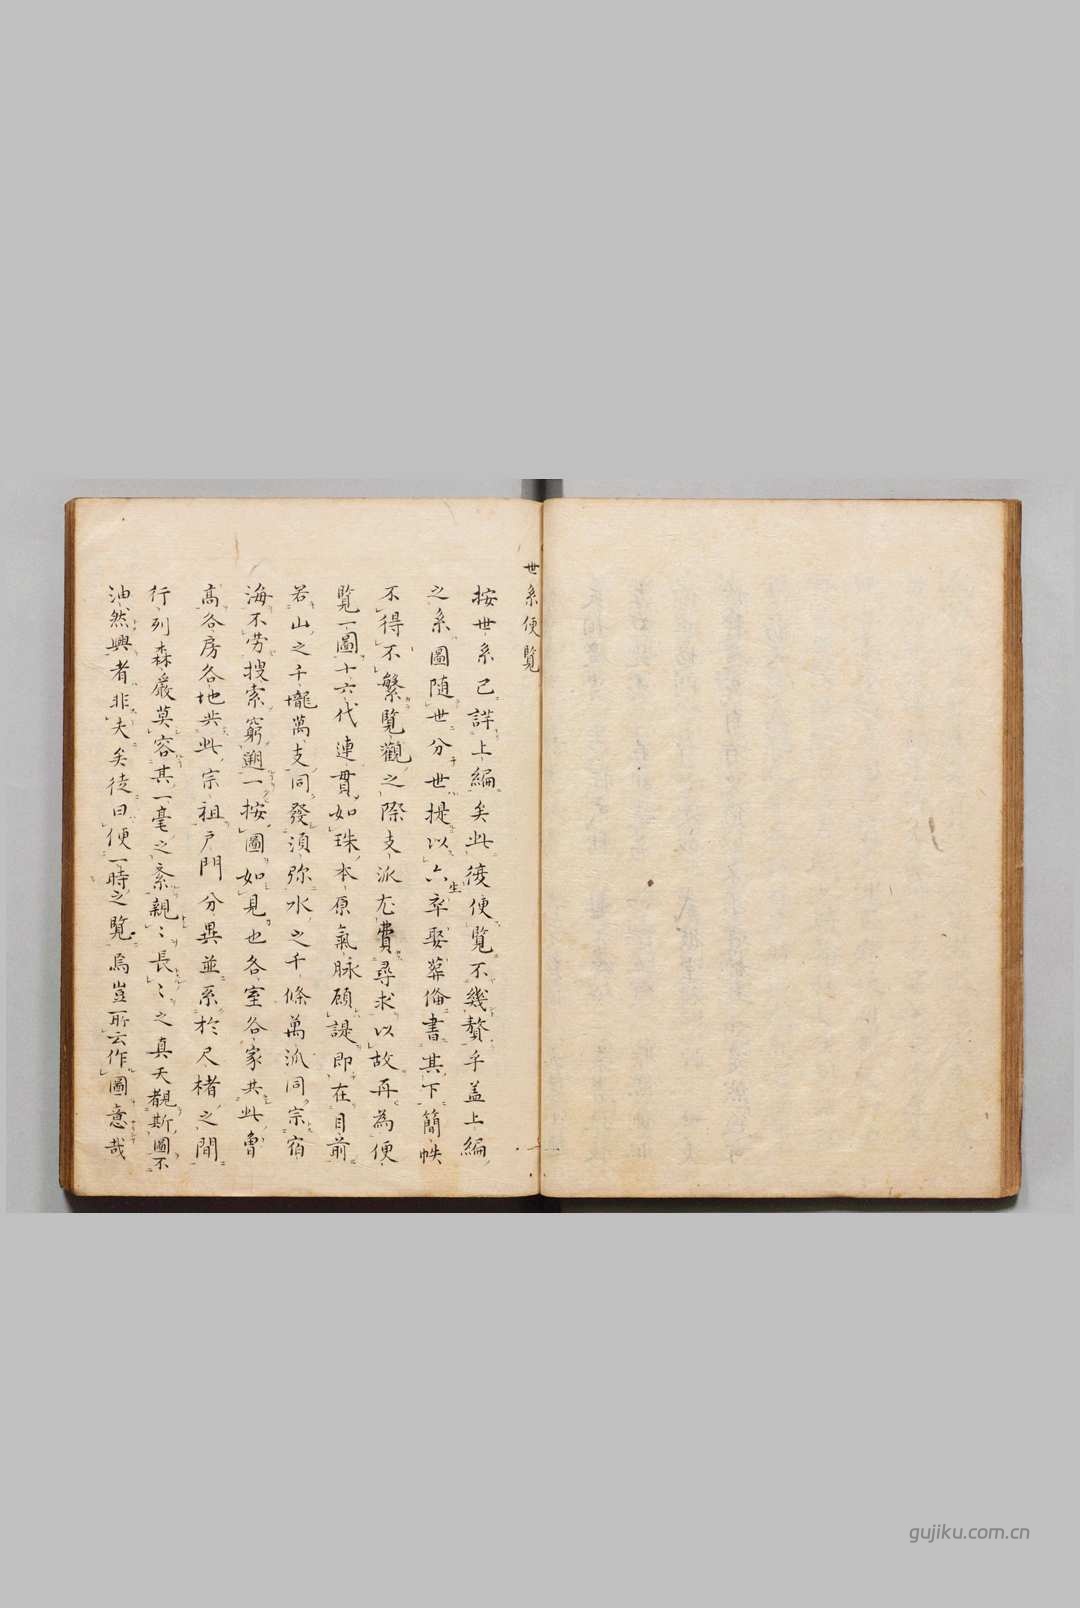 世系便覽
按世系已詳上編矣此復便覽不幾贅乎蓋上編
之系圖隨世分世提以六生卒娶葬備書其下簡帙
不得不繁覽觀之際支派尤費尋求以故再為便
覽一圖十六代連貫如珠本原氣脉顧諟即在目前
若山之千壠萬支同發須弥水之千條萬派同宗宿
海不勞搜索窮遡一按圖如見也各室各家共此曾
高各房各地共此宗祖戶門分異並系於尺楮之間
行列森嚴莫容其一毫之紊親〻長〻之真天覩斯圖不
油然興者非夫矣徒曰便一時之覽烏豈所云作圖意哉
gujiku.com.cn